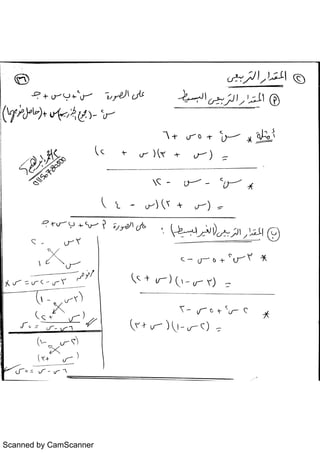 ٢ المقدار التربيعى
٣١
٩ المقدار التربيعى البسيط على الصورة س٢ + ب س + جـ
س٢ - (مجموع الجذرين) س + (حاصل ضربهما)
أمثلة * س٢ + ٥س + ٦
= (س + ٣)(س + ٢)
* س٢ - س - ١٢
= (س + ٣)(س - ٤)
ب المقدار التربيعى (الغير بسيط): على الصورة ٩س٢ + ب س + جـ
* ٣س٢ + ٥س - ٢
= (٣س - ١)(س + ٢)
* ٢س٢ + ٥س - ٣
= (٢س - ١)(س + ٣)
٣س - ٢
س ١
٣س - ٢س = س ×
(٣س - ١)
(س + ٢)
٦س - س = ٥س
(٢س - ١)
(س + ٣)
٦س - س = ٥س
Scanned by CamScanner